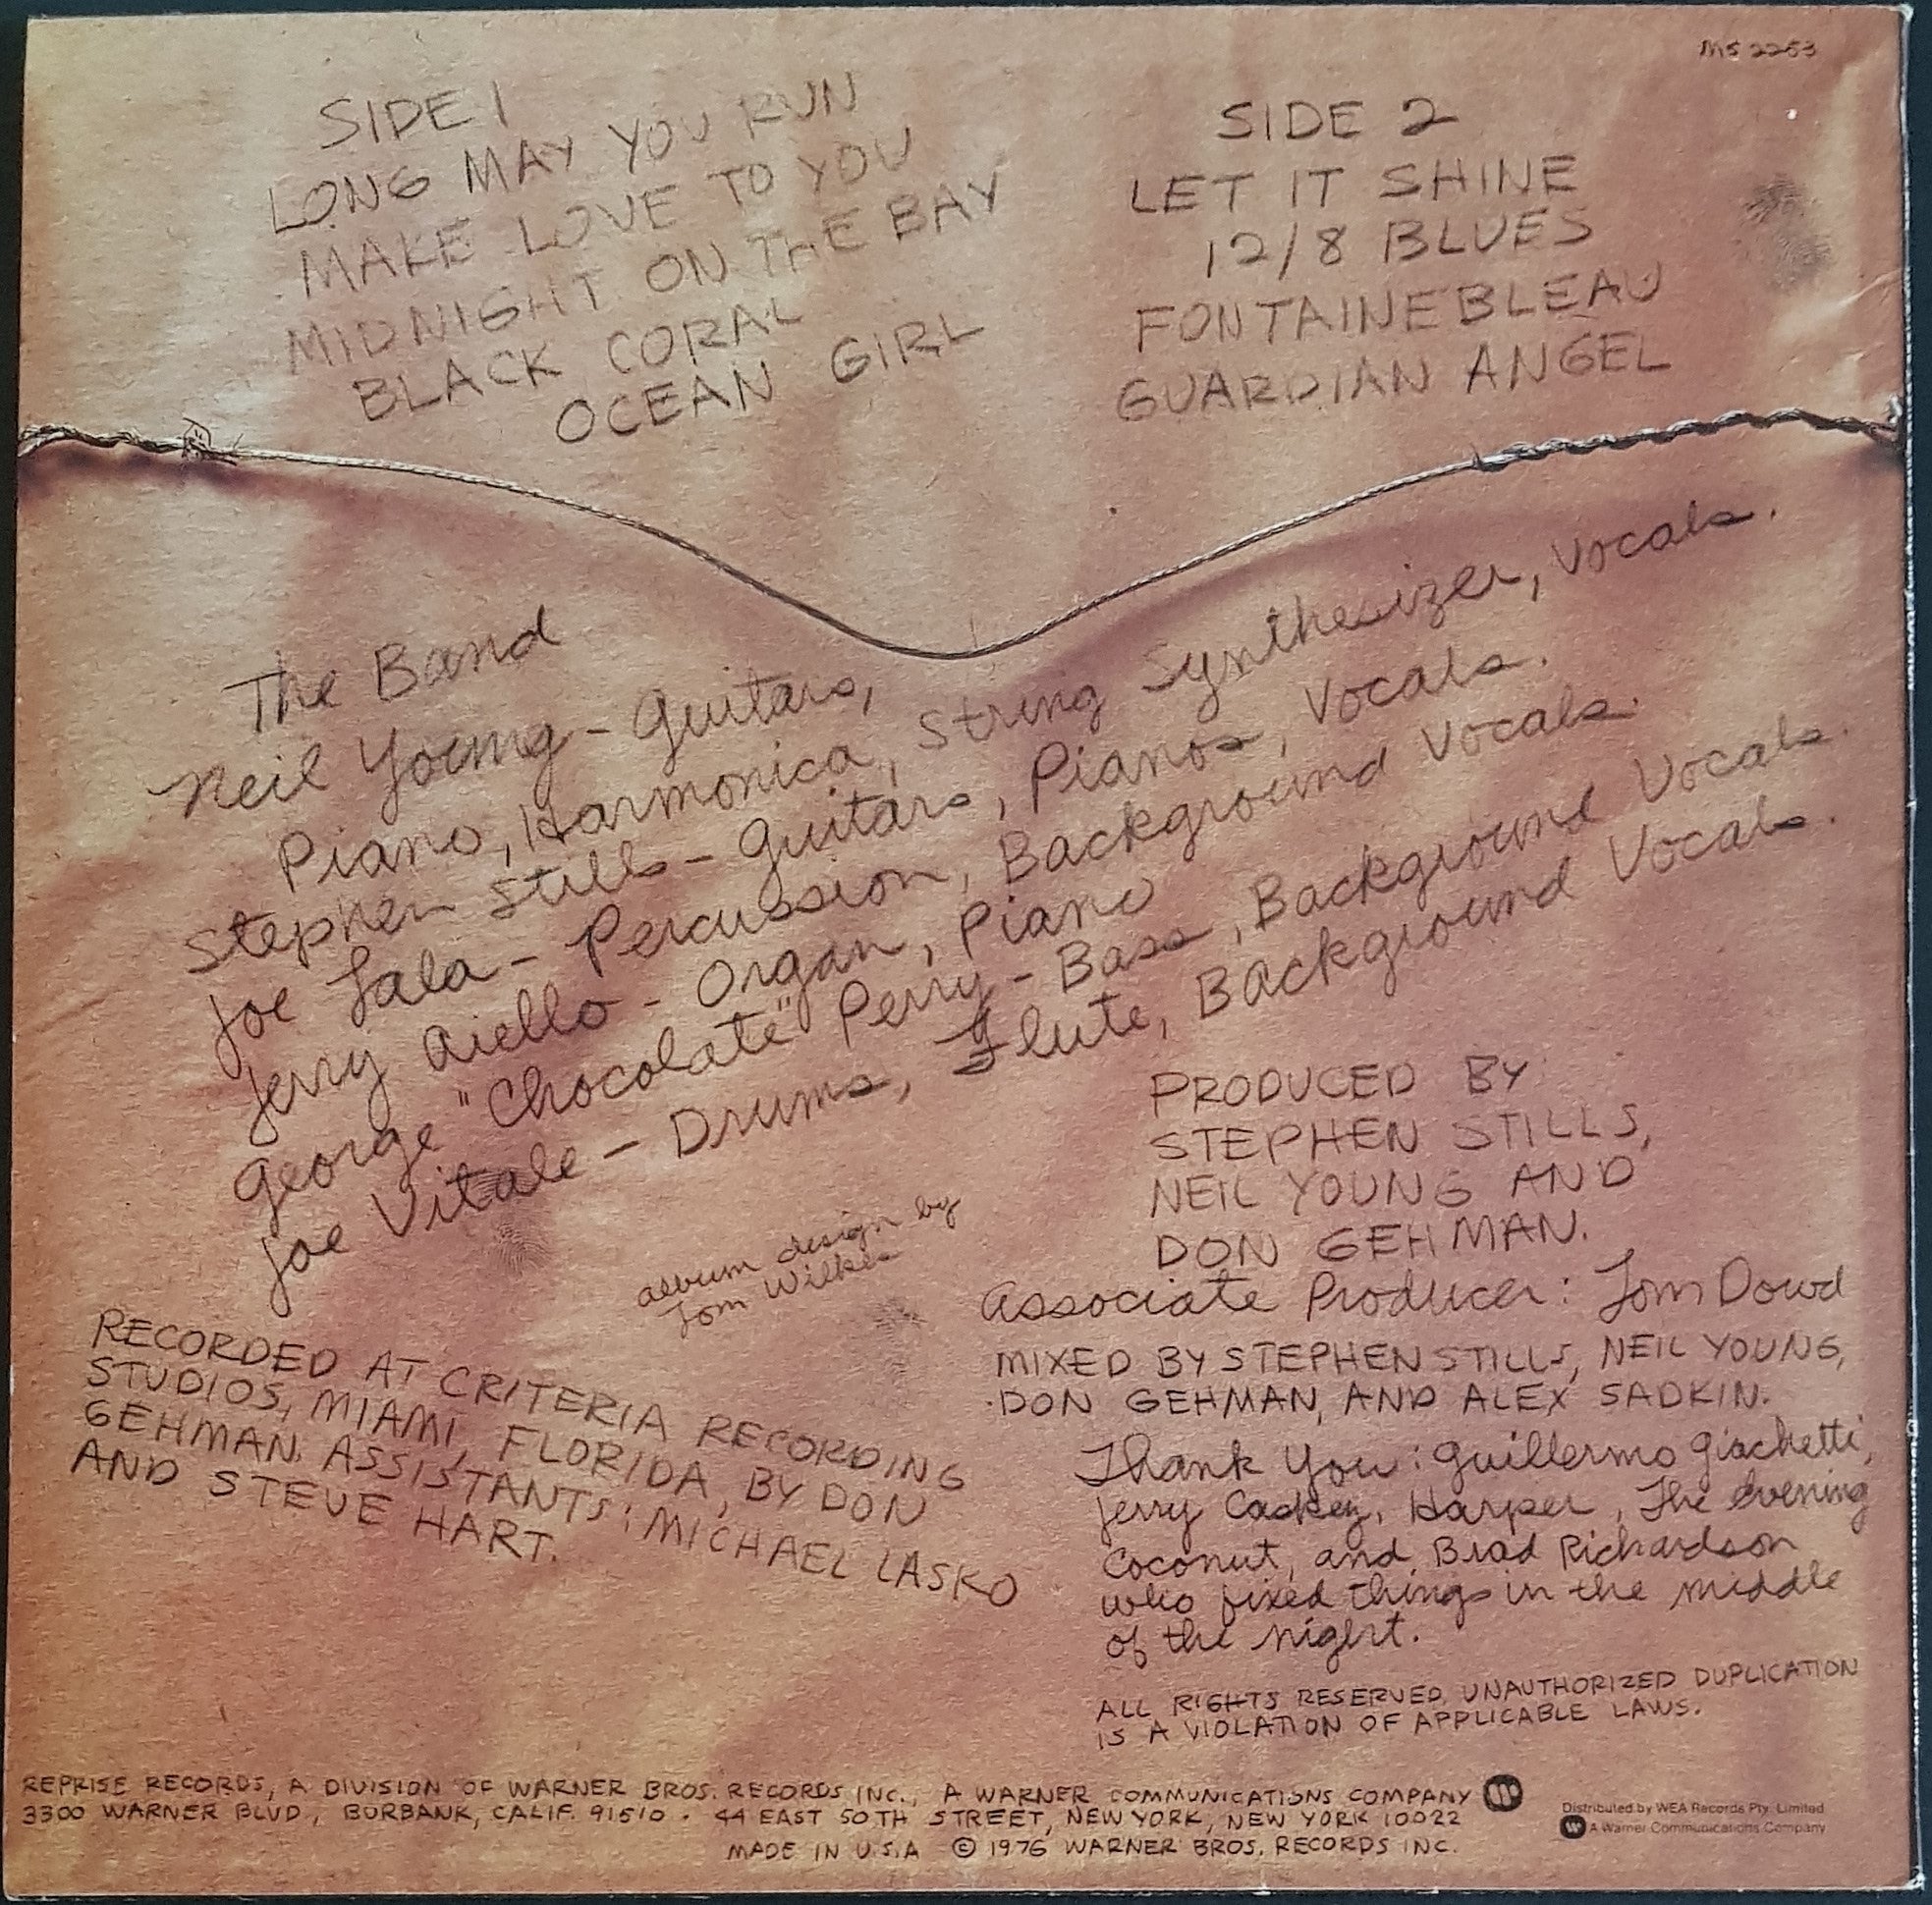 MS 2253
SIDE 1
LONG MAY YOU RUN
MAKE LOVE TO YOU
MIDNIGHT ON THE BAY
BLACK CORAL
OCEAN GIRL
SIDE 2
LET IT SHINE
12/8 BLUES
FONTAINEBLEAU
GUARDIAN ANGEL
The Band
Neil Young - Guitars,
Piano, Harmonica, String Synthesizer, Vocals.
Stephen Stills - Guitars, Pianos, Vocals.
Joe Lala - Percussion, Background Vocals.
Jerry Aiello - Organ, Piano
George "Chocolate" Perry - Bass, Background Vocals.
Joe Vitale - Drums, Flute, Background Vocals.
album design by
Tom Wilkes
RECORDED AT CRITERIA RECORDING
STUDIOS, MIAMI, FLORIDA, BY DON
GEHMAN. ASSISTANTS: MICHAEL LASKO
AND STEVE HART.
PRODUCED BY
STEPHEN STILLS,
NEIL YOUNG AND
DON GEHMAN.
Associate Producer: Tom Dowd
MIXED BY STEPHEN STILLS, NEIL YOUNG,
DON GEHMAN, AND ALEX SADKIN.
Thank You: Guillermo Giachetti,
Jerry Harper, The evening
Coconut, and Brad Richardson
who fixed things in the middle
of the night.
ALL RIGHTS RESERVED. UNAUTHORIZED DUPLICATION
IS A VIOLATION OF APPLICABLE LAWS.
REPRISE RECORDS, A DIVISION OF WARNER BROS. RECORDS INC., A WARNER COMMUNICATIONS COMPANY
3300 WARNER BLVD., BURBANK, CALIF. 91510 · 44 EAST 50TH STREET, NEW YORK, NEW YORK 10022
MADE IN U.S.A © 1976 WARNER BROS. RECORDS INC.
Distributed by WEA Records Pty. Limited
A Warner Communications Company